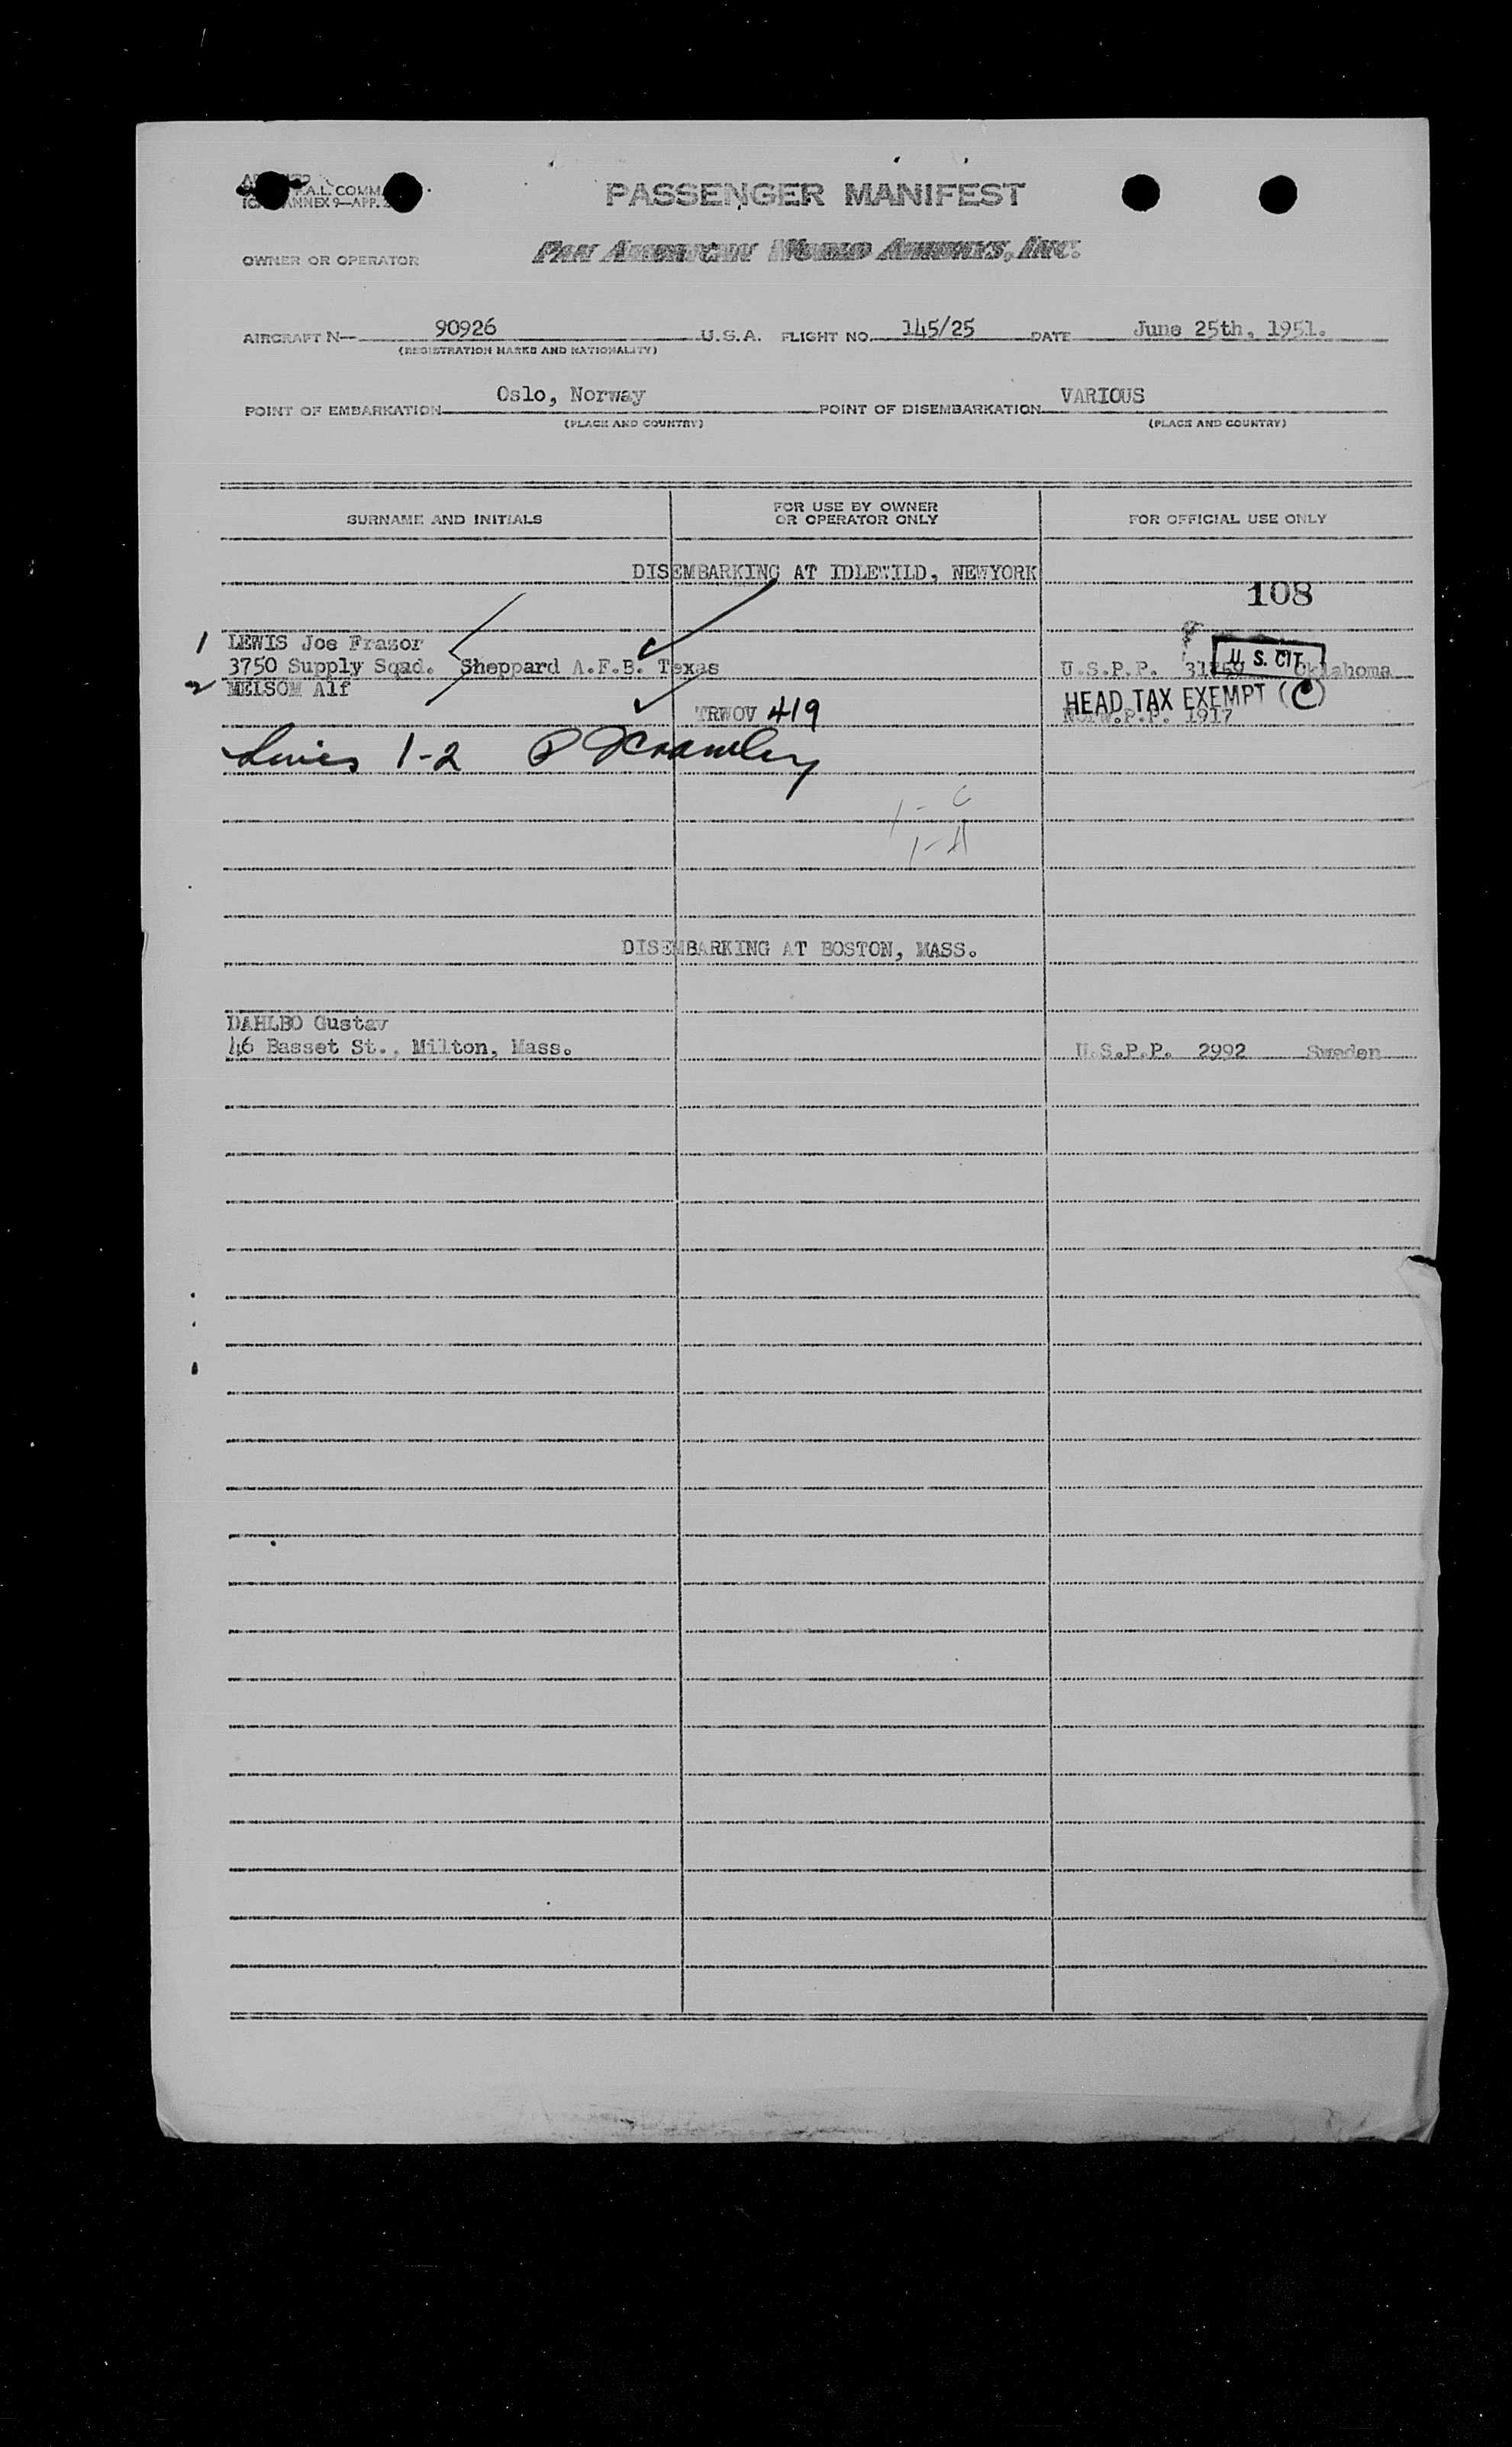 P.A.L. COMM.
ANNEX 9—APP.
PASSENGER MANIFEST
OWNER OR OPERATOR
PAN AMERICAN WORLD AIRWAYS, INC.
AIRCRAFT N— 90926 U.S.A. FLIGHT NO. 145/25 DATE June 25th, 1951.
(REGISTRATION MARKS AND NATIONALITY)
POINT OF EMBARKATION Oslo, Norway POINT OF DISEMBARKATION VARIOUS
(PLACE AND COUNTRY) (PLACE AND COUNTRY)
SURNAME AND INITIALS FOR USE BY OWNER OR OPERATOR ONLY FOR OFFICIAL USE ONLY
DISEMBARKING AT IDLEWILD, NEWYORK
108
1 LEWIS Joe Frazor
3750 Supply Sqad. Sheppard A.F.B. Texas U.S.P.P. U.S. CIT. Oklahoma
2 MELSOM Alf
HEAD TAX EXEMPT (C)
TRWOV 419 Norw.P.P. 1917
Lines 1-2
1-C
1-A
DISEMBARKING AT BOSTON, MASS.
DAHLBO Gustav
46 Basset St., Milton, Mass. U.S.P.P. 2992 Sweden